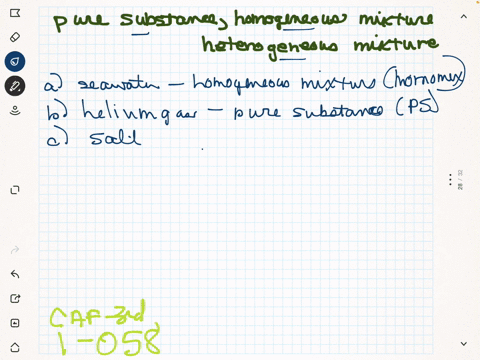 pure substance, homogeneous mixture
heterogeneous mixture
a) seawater - homogeneous mixture (homomix)
b) helium gas - pure substance (PS)
c) salt
CAF-3rd,
1-058
28 / 32